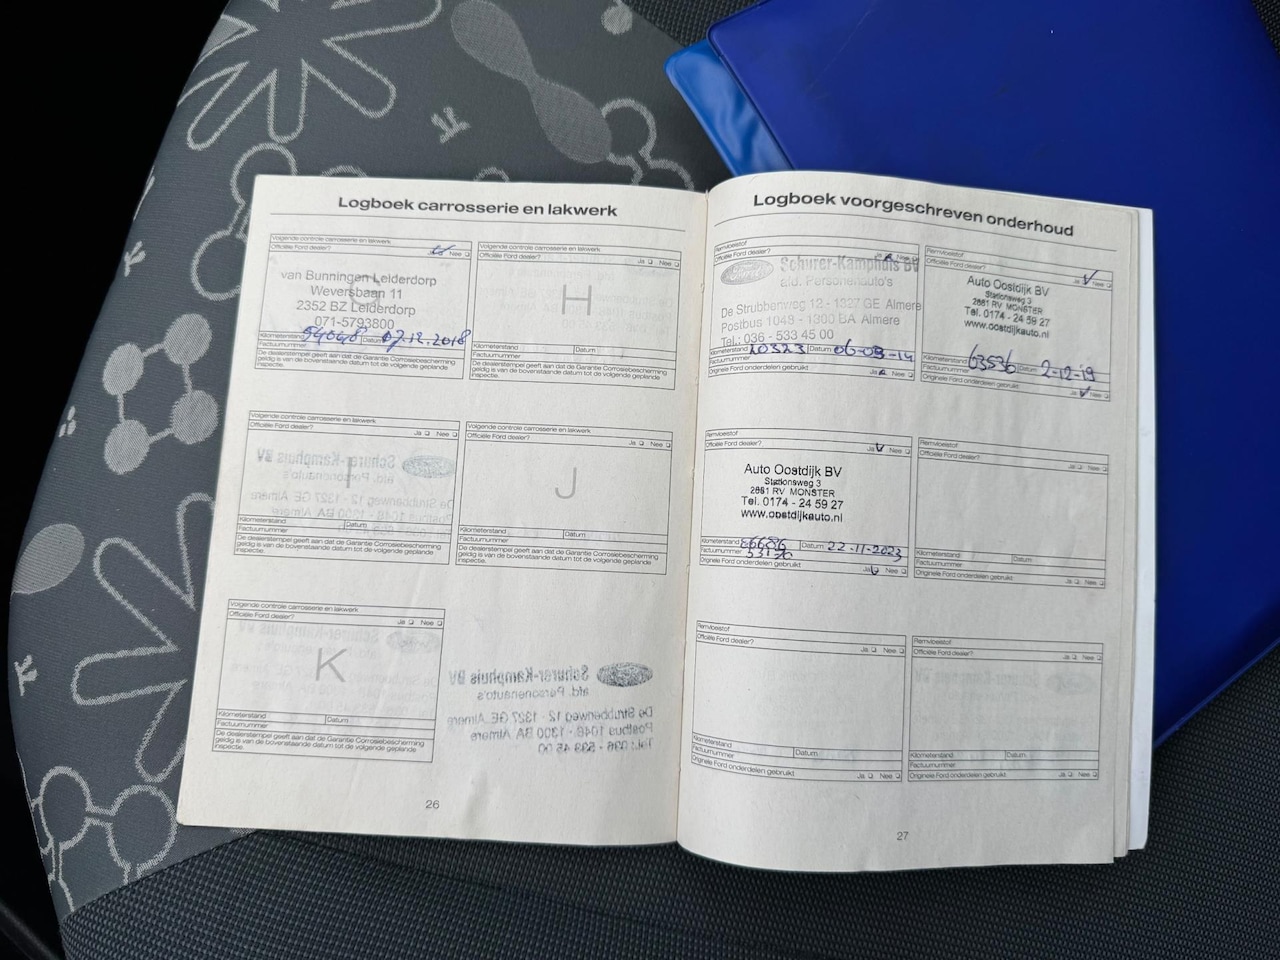 Logboek carrosserie en lakwerk
Volgende controle carrosserie en lakwerk
Officiële Ford dealer? Nee
van Bunningen Leiderdorp
Weversbaan 11
2352 BZ Leiderdorp
071-5793800
Kilometerstand Datum 07.12.2018
Factuurnummer
De dealerstempel geeft aan dat de Garantie Corrosiebescherming
geldig is van de bovenstaande datum tot de volgende geplande
inspectie.
Volgende controle carrosserie en lakwerk
Officiële Ford dealer? Ja Nee
H
Kilometerstand Datum
Factuurnummer
De dealerstempel geeft aan dat de Garantie Corrosiebescherming
geldig is van de bovenstaande datum tot de volgende geplande
inspectie.
Volgende controle carrosserie en lakwerk
Officiële Ford dealer? Ja Nee
I
Kilometerstand Datum
Factuurnummer
De dealerstempel geeft aan dat de Garantie Corrosiebescherming
geldig is van de bovenstaande datum tot de volgende geplande
inspectie.
Volgende controle carrosserie en lakwerk
Officiële Ford dealer? Ja Nee
J
Kilometerstand Datum
Factuurnummer
De dealerstempel geeft aan dat de Garantie Corrosiebescherming
geldig is van de bovenstaande datum tot de volgende geplande
inspectie.
Volgende controle carrosserie en lakwerk
Officiële Ford dealer? Ja Nee
K
Kilometerstand Datum
Factuurnummer
De dealerstempel geeft aan dat de Garantie Corrosiebescherming
geldig is van de bovenstaande datum tot de volgende geplande
inspectie.
26
Logboek voorgeschreven onderhoud
Remvloeistof
Officiële Ford dealer? Ja Nee
Schurer-Kamphuis BV
afd. Personenauto's
De Strubbenweg 12 - 1327 GE Almere
Postbus 1048 - 1300 BA Almere
Tel.: 036 - 533 45 00
Kilometerstand 20323 Datum 06-03-14
Factuurnummer
Originele Ford onderdelen gebruikt Ja Nee
Remvloeistof
Officiële Ford dealer? Ja Nee
Auto Oostdijk BV
Stationsweg 3
2681 RV MONSTER
Tel. 0174 - 24 59 27
www.oostdijkauto.nl
Kilometerstand 63536 Datum 2-12-19
Factuurnummer
Originele Ford onderdelen gebruikt Ja Nee
Remvloeistof
Officiële Ford dealer? Ja Nee
Auto Oostdijk BV
Stationsweg 3
2681 RV MONSTER
Tel. 0174 - 24 59 27
www.oostdijkauto.nl
Kilometerstand 86686 Datum 22-11-2023
Factuurnummer
Originele Ford onderdelen gebruikt Ja Nee
Remvloeistof
Officiële Ford dealer? Ja Nee
Kilometerstand Datum
Factuurnummer
Originele Ford onderdelen gebruikt Ja Nee
Remvloeistof
Officiële Ford dealer? Ja Nee
Kilometerstand Datum
Factuurnummer
Originele Ford onderdelen gebruikt Ja Nee
Remvloeistof
Officiële Ford dealer? Ja Nee
Kilometerstand Datum
Factuurnummer
Originele Ford onderdelen gebruikt Ja Nee
27